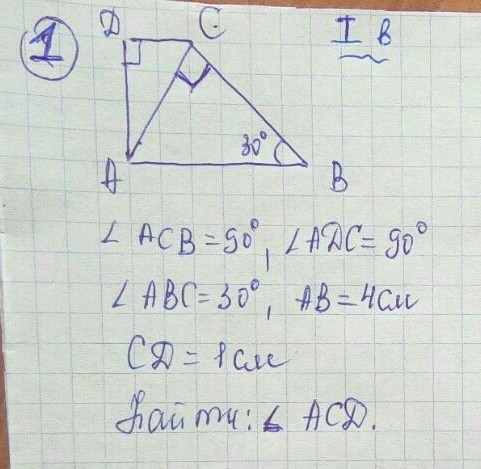 1
I в
D C
30°
A B
∠ ACB = 90°, ∠ ADC = 90°
∠ ABC = 30°, AB = 4 см
CD = 1 см
Найти: ∠ ACD.